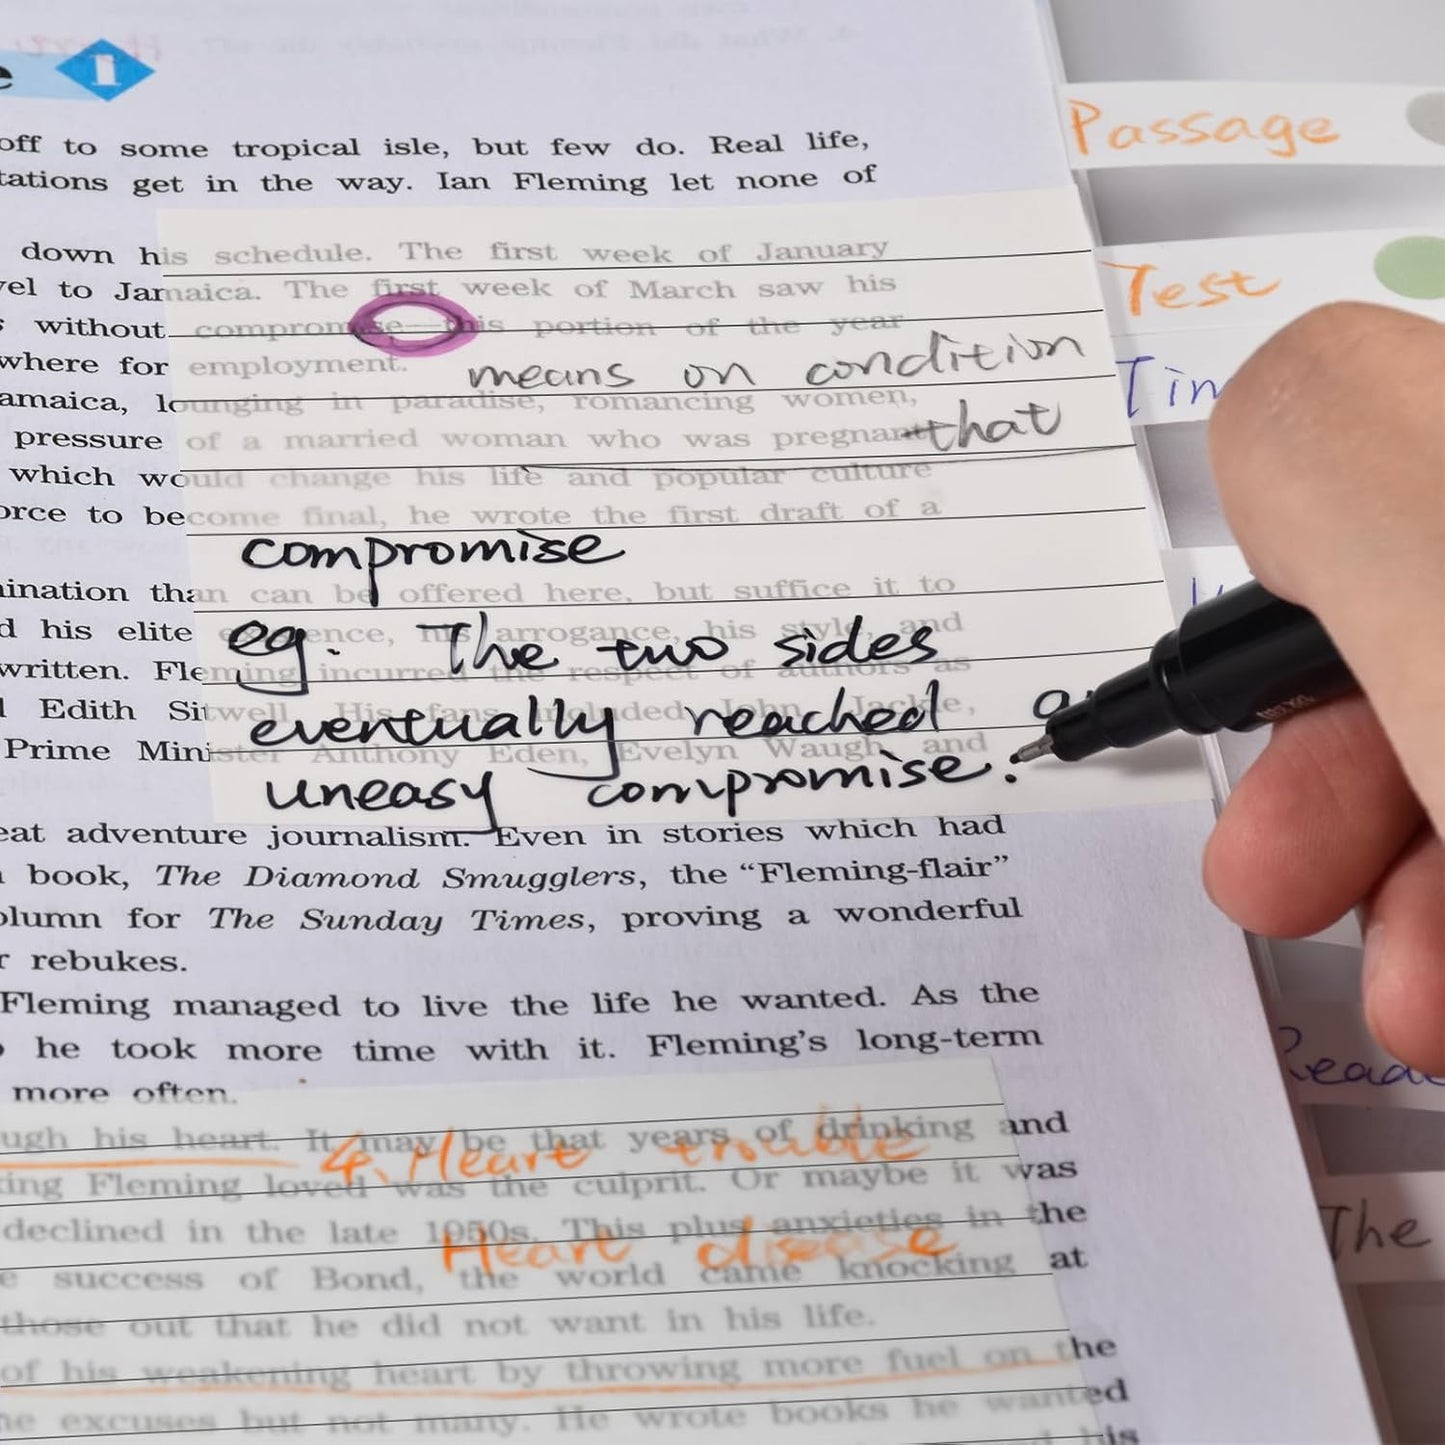 1
off to some tropical isle, but few do. Real life,
get in the way. Ian Fleming let none of
down his schedule. The first week of January
to Jamaica. The first week of March saw his
without compromise—this portion of the year
where for employment.
means on condition
lounging in paradise, romancing women,
pressure of a married woman who was pregnant
that
which would change his life and popular culture
to become final, he wrote the first draft of a
compromise
than can be offered here, but suffice it to
his elite existence, his arrogance, his style, and
eg. The two sides
written. Fleming incurred the respect of authors as
Edith Sitwell. His fans included John Jackle,
eventually reached
Prime Minister Anthony Eden, Evelyn Waugh, and
uneasy compromise.
adventure journalism. Even in stories which had
book, The Diamond Smugglers, the “Fleming-flair”
for The Sunday Times, proving a wonderful
rebukes.
Fleming managed to live the life he wanted. As the
he took more time with it. Fleming's long-term
more often.
his heart. It may be that years of drinking and
4. Heart trouble
Fleming loved was the culprit. Or maybe it was
declined in the late 1950s. This plus anxieties in the
Heart disease
success of Bond, the world came knocking at
those out that he did not want in his life.
of his weakening heart by throwing more fuel on the
excuses but not many. He wrote books he wanted
his
Passage
Test
The